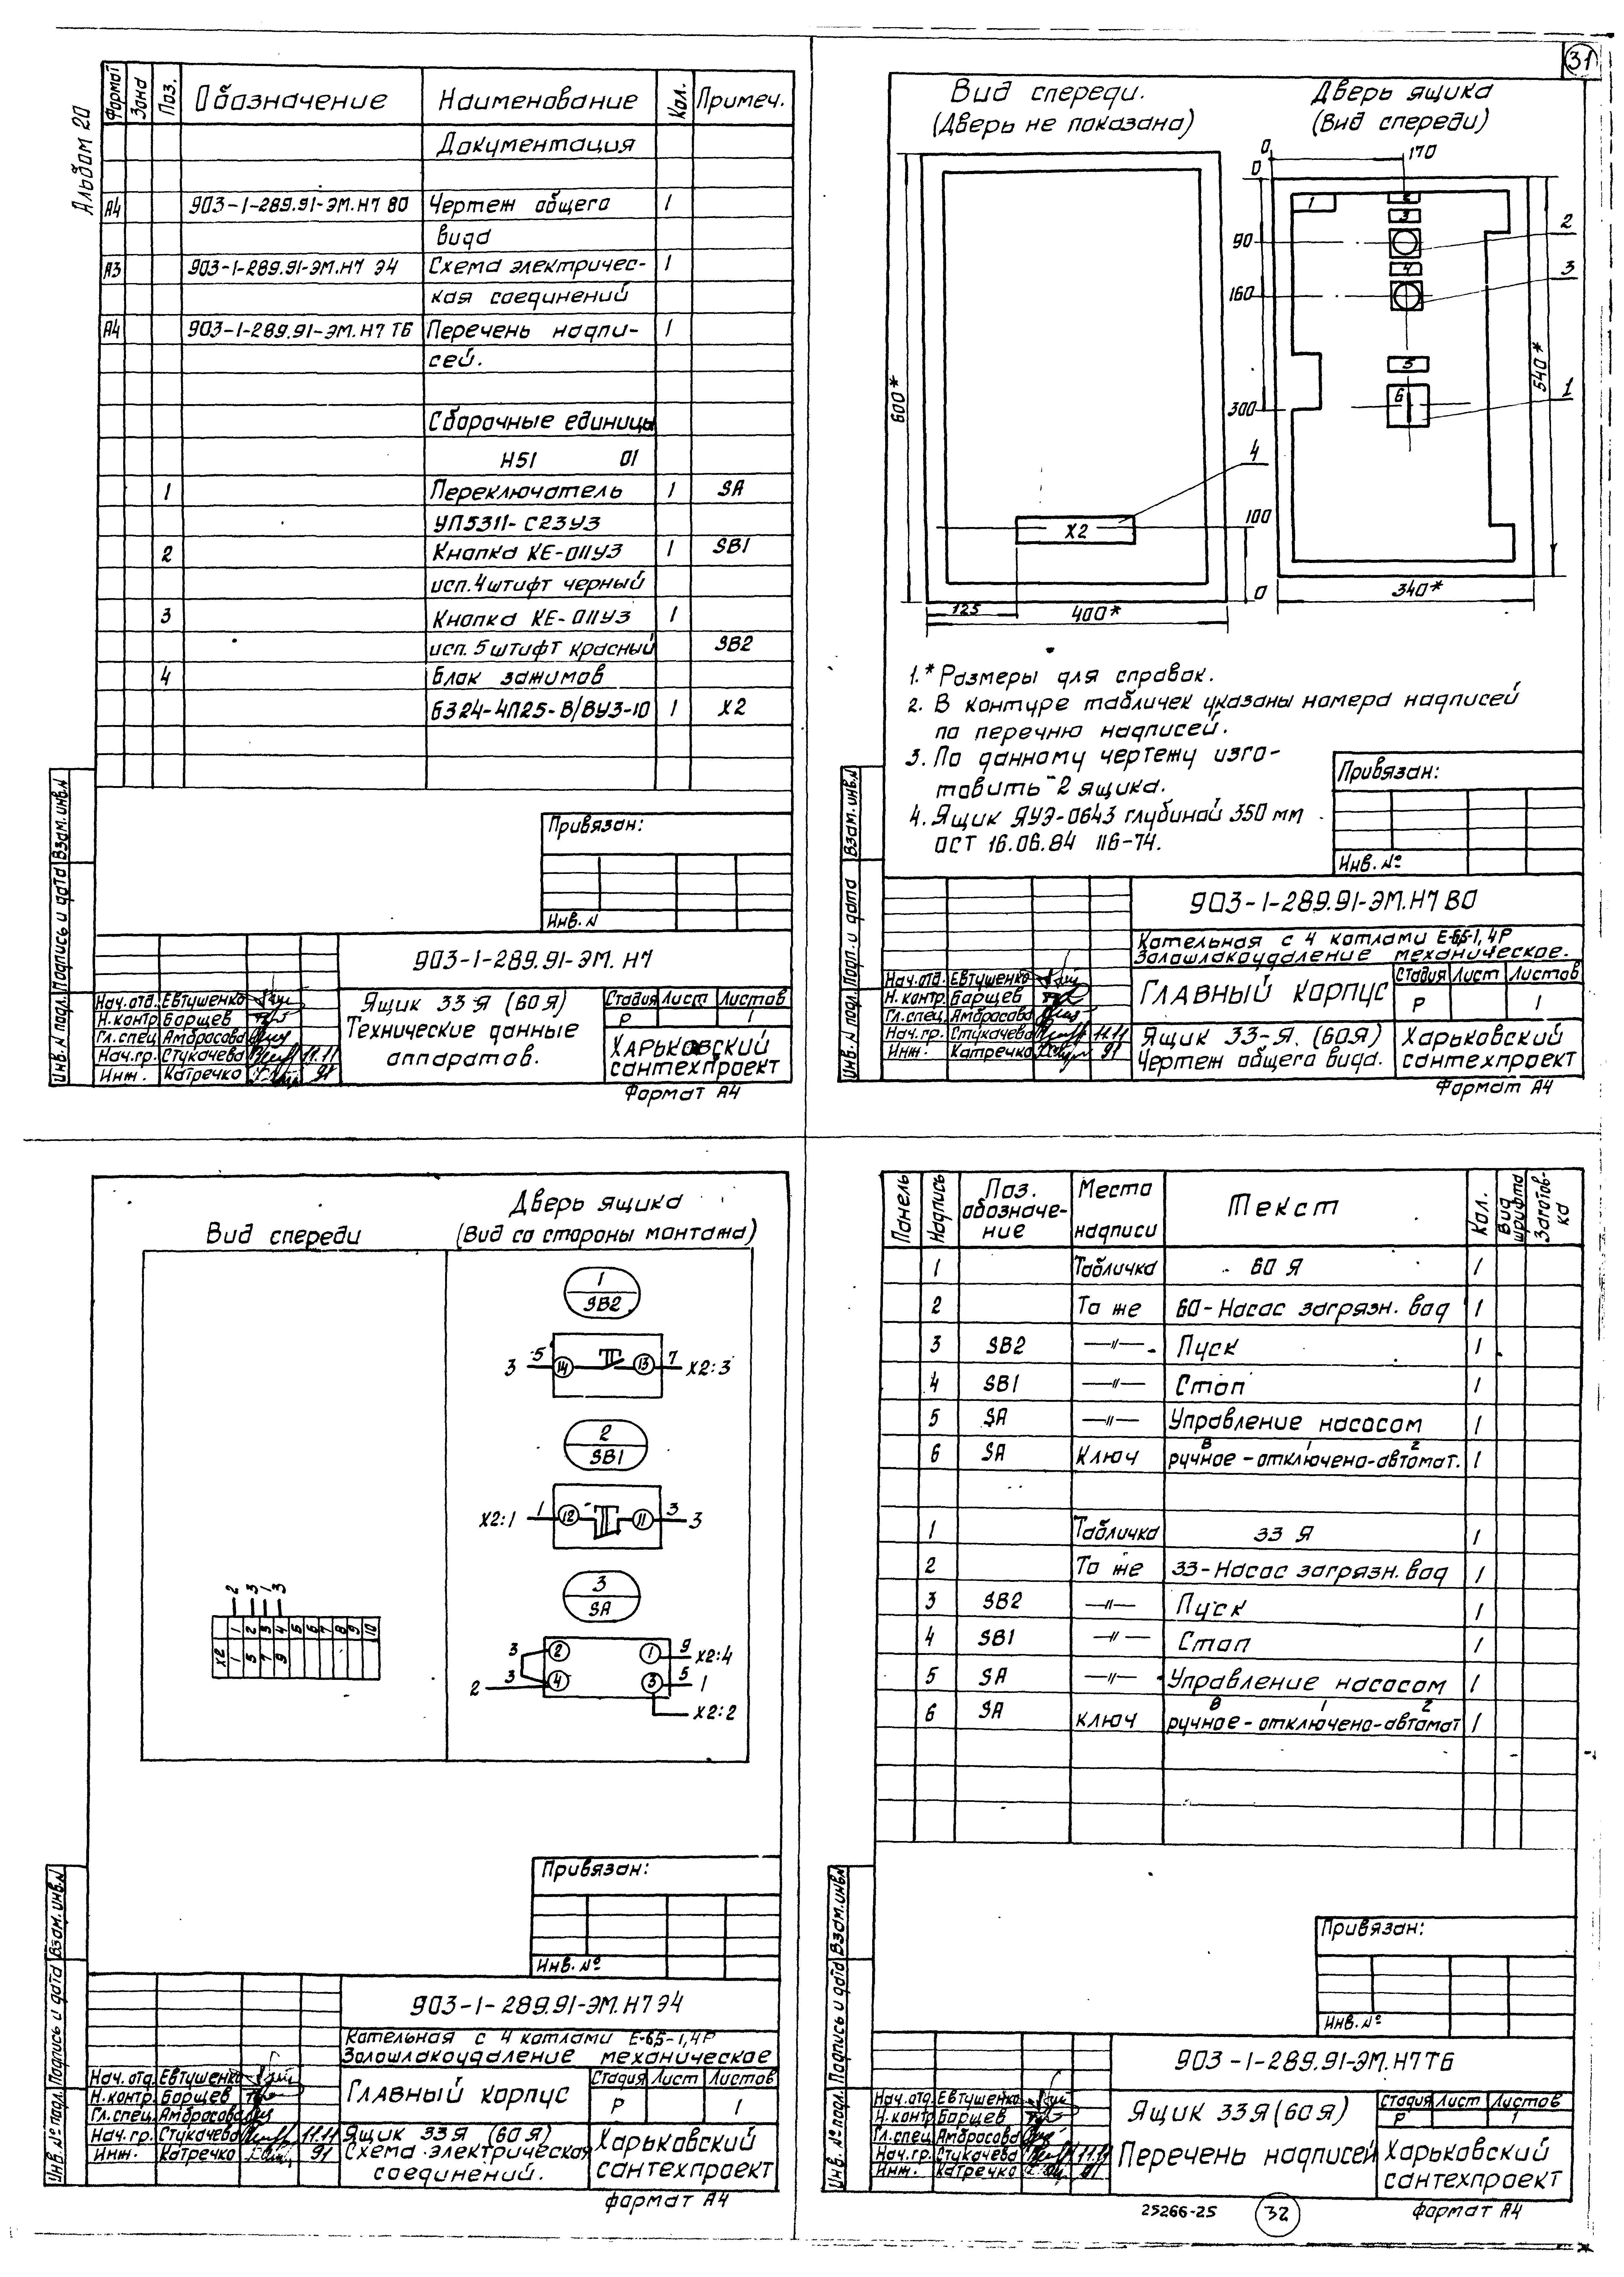 31
Альбом 20
Формат
Зона
Поз.
Обозначение
Наименование
Кол.
Примеч.
Документация
А4 903-1-289.91-ЭМ.Н7 ВО Чертеж общего 1
вида
А3 903-1-289.91-ЭМ.Н7 Э4 Схема электричес- 1
кая соединений
А4 903-1-289.91-ЭМ.Н7 ТБ Перечень надпи- 1
сей.
Сборочные единицы
Н51 01
1 Переключатель 1 SA
УП5311-С23У3
2 Кнопка КЕ-011У3 1 SB1
исп.4 штифт черный
3 Кнопка КЕ-011У3 1
исп.5 штифт красный SB2
4 Блок зажимов
Б324-4П25-В/ВУ3-10 1 Х2
Привязан:
Инв.N
Инв.N подл. Подпись и дата Взам.инв.N
903-1-289.91-ЭМ.Н7
Нач.отд. Евтушенко
Н.контр. Борщев
Гл.спец. Амбросова
Нач.гр. Стукачева 11.11
Инж. Катречко 91
Ящик 33Я (60Я)
Технические данные
аппаратов.
Стадия Лист Листов
Р 1
Харьковский
сантехпроект
Формат А4
Вид спереди.
(Дверь не показана)
Дверь ящика
(Вид спереди)
0
170
0
1
2
3
90
2
4
160
3
5
300
6
1
540*
340*
600*
4
Х2
100
0
125
400*
1.* Размеры для справок.
2. В контуре табличек указаны номера надписей
по перечню надписей.
3. По данному чертежу изго-
товить 2 ящика.
4. Ящик ЯУЭ-0643 глубиной 350 мм
ОСТ 16.06.84 116-74.
Привязан:
Инв.№
Инв.N подл. Подп. и дата Взам.инв.N
903-1-289.91-ЭМ.Н7 ВО
Котельная с 4 котлами Е-6,5-1,4Р
Золошлакоудаление механическое.
Нач.отд. Евтушенко
Н.контр. Борщев
Гл.спец. Амбросова
Нач.гр. Стукачева 11.11
Инж. Катречко 91
Главный корпус
Стадия Лист Листов
Р 1
Ящик 33-Я. (60Я)
Чертеж общего вида.
Харьковский
сантехпроект
Формат А4
Вид спереди
Дверь ящика
(Вид со стороны монтажа)
1
SB2
3 5 14 13 7 Х2:3
2
SB1
Х2:1 1 12 11 3 3
3
SA
3 2 1 9 Х2:4
2 3 4 3 5 1
Х2:2
2 3 1 3
Х2 1 2 3 4 5 6 7 8 9 10
1 5 7 9
Привязан:
Инв.№
Инв.№ подл. Подпись и дата Взам.инв.N
903-1-289.91-ЭМ.Н7 Э4
Котельная с 4 котлами Е-6,5-1,4Р
Золошлакоудаление механическое
Нач.отд. Евтушенко
Н.контр. Борщев
Гл.спец. Амбросова
Нач.гр. Стукачева 11.11
Инж. Катречко 91
Главный корпус
Стадия Лист Листов
Р 1
Ящик 33Я (60Я)
Схема электрическая
соединений.
Харьковский
сантехпроект
формат А4
Панель
Надпись
Поз. обозначе- ние
Место надписи
Текст
Кол.
Вид шрифта
Заготов- ка
1 Табличка 60 Я 1
2 То же 60-Насос загрязн. вод 1
3 SB2 —"— Пуск 1
4 SB1 —"— Стоп 1
5 SA —"— Управление насосом 1
в 1 2
6 SA Ключ ручное-отключено-автомат. 1
1 Табличка 33 Я 1
2 То же 33-Насос загрязн. вод 1
3 SB2 —"— Пуск 1
4 SB1 —"— Стоп 1
5 SA —"— Управление насосом 1
в 1 2
6 SA ключ ручное-отключено-автомат 1
Привязан:
Инв.№
Инв.№ подл. Подпись и дата Взам.инв.N
903-1-289.91-ЭМ.Н7 ТБ
Нач.отд. Евтушенко
Н.контр. Борщев
Гл.спец. Амбросова
Нач.гр. Стукачева 11.11
Инж. Катречко 91
Ящик 33Я (60Я)
Перечень надписей
Стадия Лист Листов
Р 1
Харьковский
сантехпроект
25266-25
32
формат А4